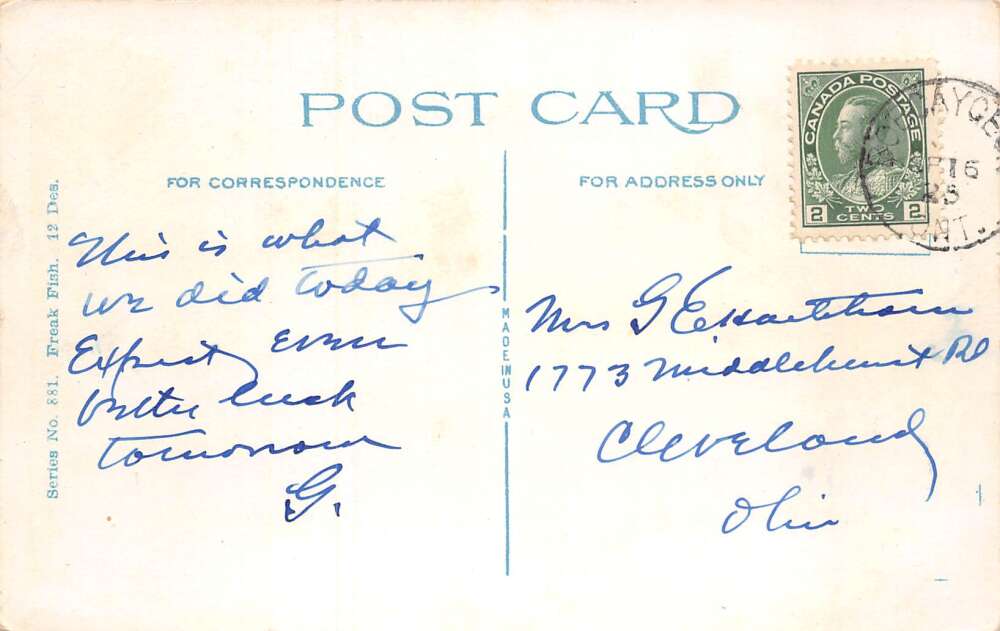 POST CARD
FOR CORRESPONDENCE
FOR ADDRESS ONLY
CANADA POSTAGE
2 TWO CENTS 2
16
ONT.
Series No. 881. Freak Fish. 12 Des.
MADE IN USA
This is what
we did today
Expect even
better luck
tomorrow
G.
Mrs G E
1773 Middlehurst Rd
Cleveland
Ohio